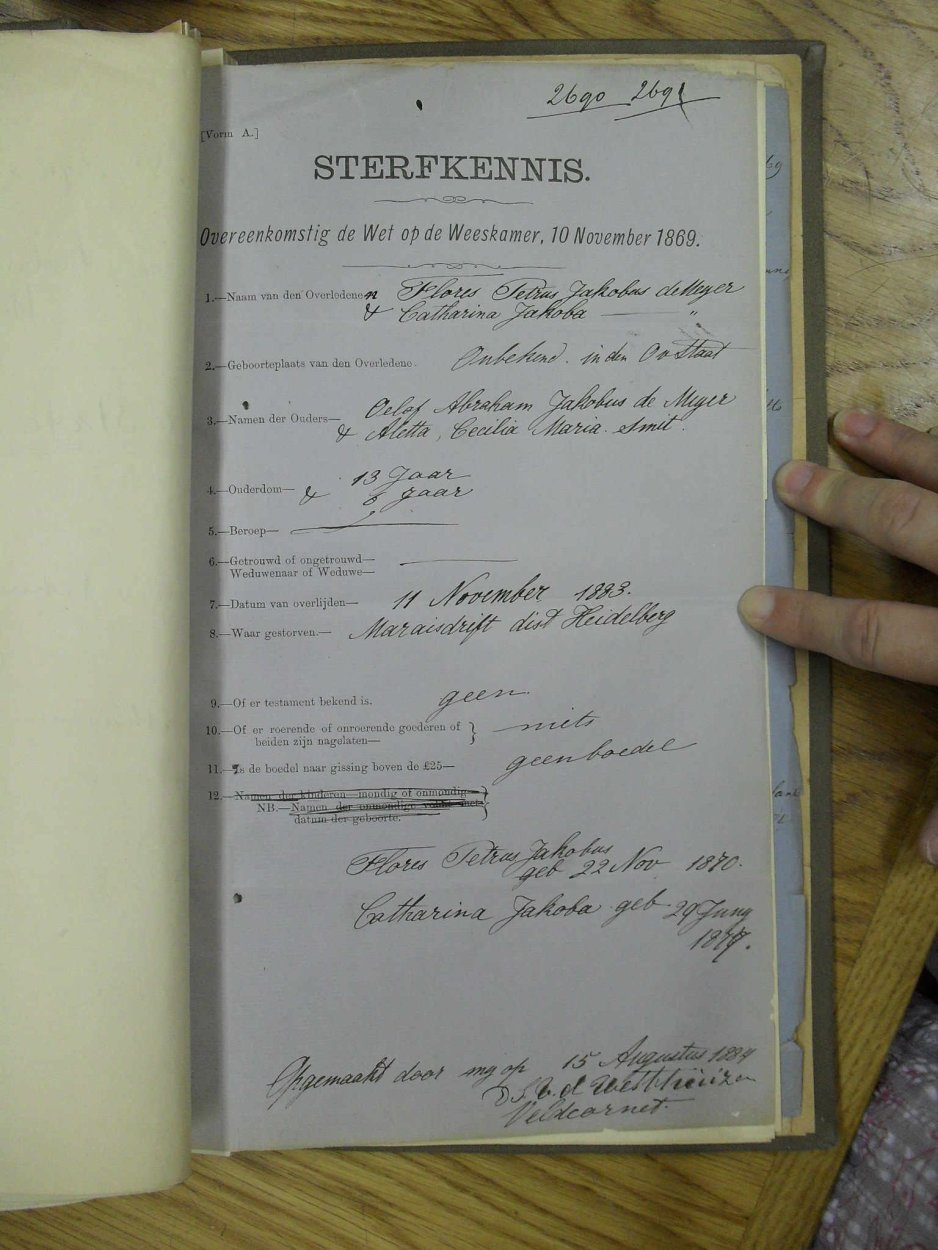 2690 2691
[Vorm A.]
STERFKENNIS.
Overeenkomstig de Wet op de Weeskamer, 10 November 1869.
1.—Naam van den Overledenen Flores Petrus Jakobus de Meyer
& Catharina Jakoba —— "
2.—Geboorteplaats van den Overledene. Onbekend. in den O v Staat
3.—Namen der Ouders— Oelof Abraham Jakobus de Meyer
& Aletta, Cecilia Maria Smit.
4.—Ouderdom— 13 Jaar
& 6 Jaar
5.—Beroep—
6.—Getrouwd of ongetrouwd—
Weduwenaar of Weduwe—
7.—Datum van overlijden— 11 November 1883.
8.—Waar gestorven.— Maraisdrift dist Heidelberg
9.—Of er testament bekend is. geen
10.—Of er roerende of onroerende goederen of
beiden zijn nagelaten— niets
11.—Is de boedel naar gissing boven de £25— geen boedel
12.—Namen der kinderen—mondig of onmondig
NB.—Namen der onmondige met
datum der geboorte.
Flores Petrus Jakobus
geb 22 Nov 1870.
Catharina Jakoba geb 29 Juny
1877.
Opgemaakt door my op 15 Augustus 1884
Veldcornet.